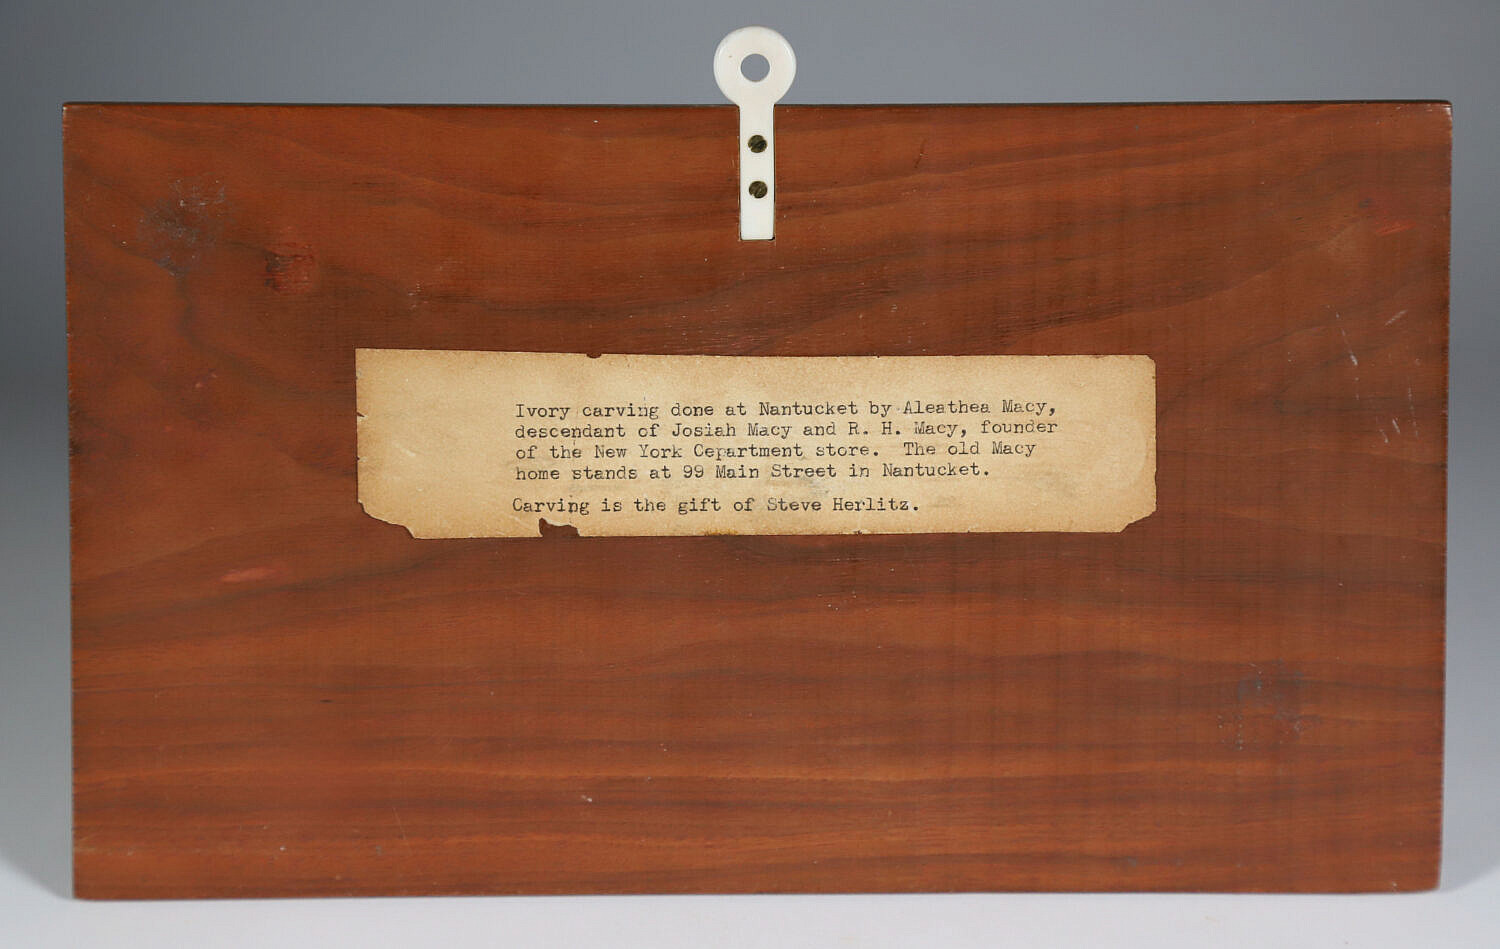 Ivory carving done at Nantucket by Aleathea Macy,
descendant of Josiah Macy and R. H. Macy, founder
of the New York Cepartment store.  The old Macy
home stands at 99 Main Street in Nantucket.
Carving is the gift of Steve Herlitz.